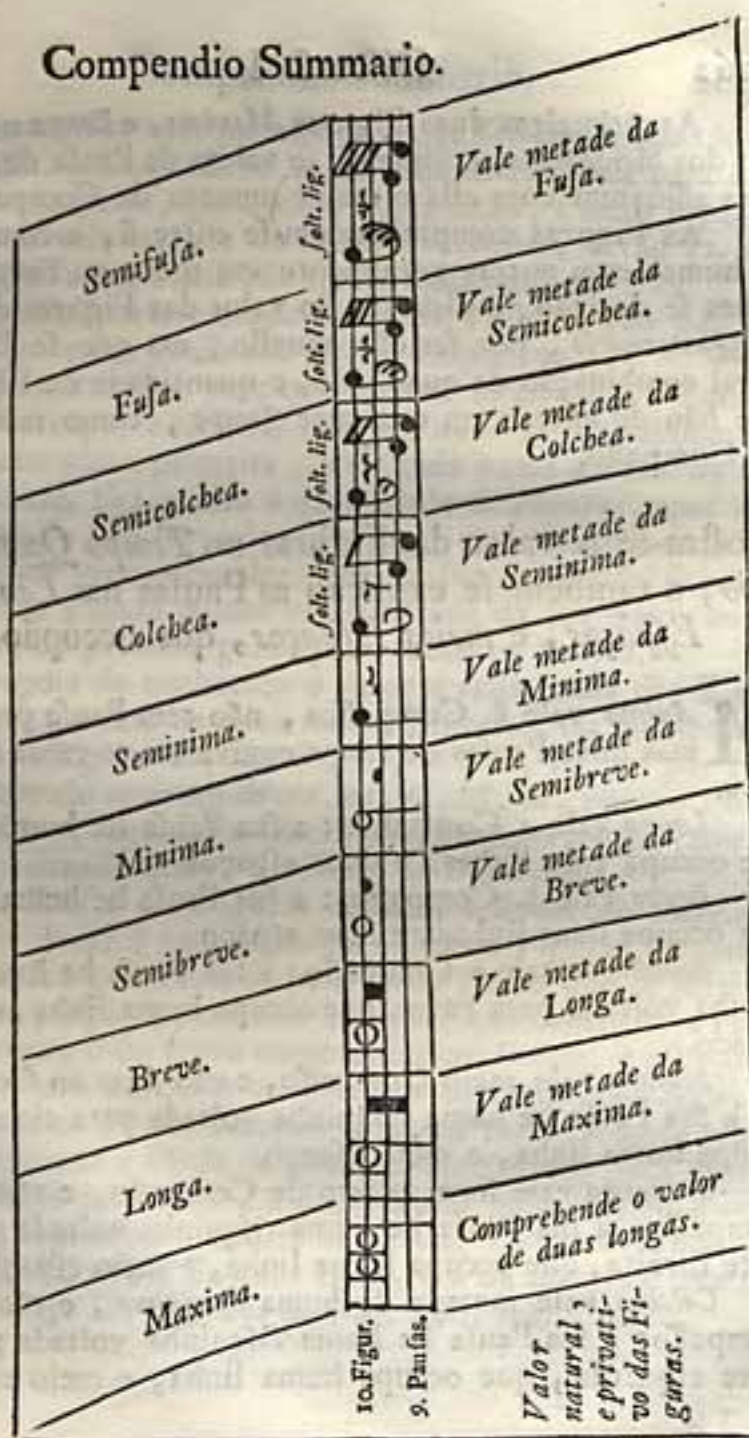 Compendio Summario.
Semifuſa.
ſolt. lig.
Vale metade da
Fuſa.
Fuſa.
ſolt. lig.
Vale metade da
Semicolchea.
Semicolchea.
ſolt. lig.
Vale metade da
Colchea.
Colchea.
ſolt. lig.
Vale metade da
Seminima.
Seminima.
Vale metade da
Minima.
Minima.
Vale metade da
Semibreve.
Semibreve.
Vale metade da
Breve.
Breve.
Vale metade da
Longa.
Longa.
Vale metade da
Maxima.
Maxima.
Comprehende o valor
de duas longas.
10. Figur.
9. Pauſas.
Valor
natural,
e privati-
vo das Fi-
guras.